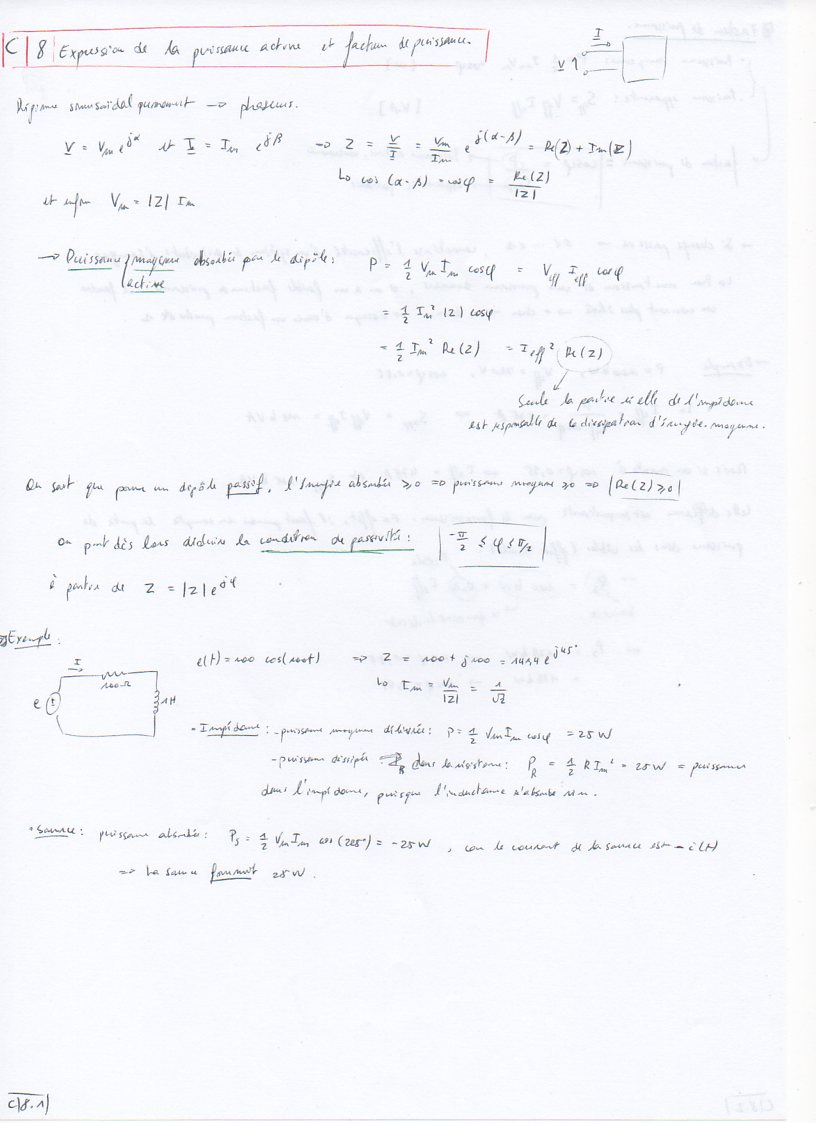 C 8 Expression de la puissance active et facteur de puissance.
I
V
Régime sinusoïdal permanent → phaseurs.
V = Vm e^jα et I = Im e^jβ → Z = V/I = Vm/Im e^j(α-β) = Re(Z) + Im(Z)
↳ cos(α-β) = cosφ = Re(Z)/|Z|
et enfin Vm = |Z| Im
→ Puissance moyenne absorbée par le dipôle : P = 1/2 Vm Im cosφ = Veff Ieff cosφ
active
= 1/2 Im² |Z| cosφ
= 1/2 Im² Re(Z) = Ieff² Re(Z)
Seule la partie réelle de l'impédance
est responsable de la dissipation d'énergie moyenne.
On sait que pour un dipôle passif, l'énergie absorbée ≥0 ⇒ puissance moyenne ≥0 ⇒ Re(Z) ≥0
On peut dès lors déduire la condition de passivité : -π/2 ≤ φ ≤ π/2
à partir de Z = |Z| e^jφ
Exemple :
I
e
100Ω
1H
e(t) = 100 cos(100t) ⇒ Z = 100 + j100 = 141,4 e^j45°
↳ Im = Vm/|Z| = 1/√2
- Impédance : - puissance moyenne délivrée : P = 1/2 Vm Im cosφ = 25W
- puissance dissipée dans la résistance : PR = 1/2 R Im² = 25W = puissance
dans l'impédance, puisque l'inductance n'absorbe rien.
• Source : puissance absorbée : Ps = 1/2 Vm Im cos(225°) = -25W, car le courant de la source est -i(t)
⇒ La source fournit 25W.
C|8.1|